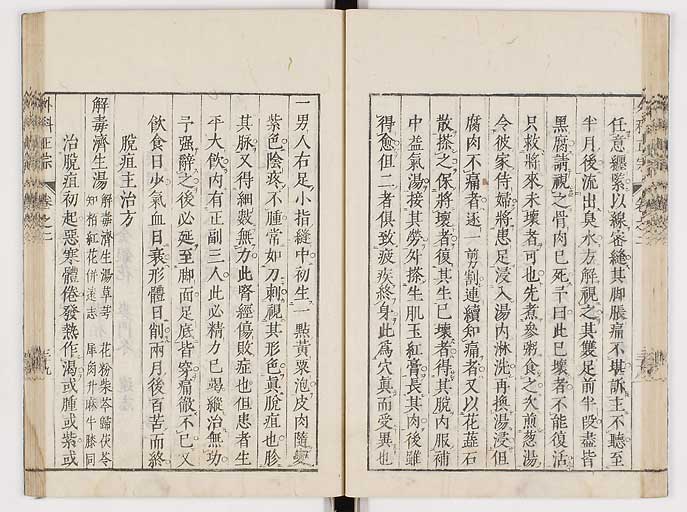 任意纏緊以線密縫其脚脹痛不堪訴主不聽至
半月後流出臭水方解視之其雙足前半段盡皆
黑腐請視之骨肉已死予曰此已壞者不能復活
只救將來未壞者可也先煮參粥食之次煎葱湯
令彼家侍婦將患足浸入湯內淋洗再換湯浸但
腐肉不痛者逐一剪割連續知痛者又以花蕊石
散搽之保將壞者復其生已壞者得其脫內服補
中益氣湯接其勞外搽生肌玉紅膏長其肉後雖
得愈但二者俱致疲疾終身此爲穴真而受異也
一男人右足小指縫中初生一點黃粟泡皮肉隨變
紫色陰疼不腫常如刀刺視其形色眞脫疽也胗
其脈又得細數無力此腎經傷敗症也但患者生
平大飲內有正副三人此必精力已竭縱治無功
予強辭之後必延至脚面足底皆穿痛徹不已又
飲食日少氣血日衰形體日削兩月後百苦而終
脫疽主治方
解毒濟生湯
解毒濟生湯草芎 花粉柴苓歸茯苓
知柏紅花併遠志 犀角升麻牛膝同
治脫疽初起惡寒體倦發熱作渴或腫或紫或
外科正宗 卷之二